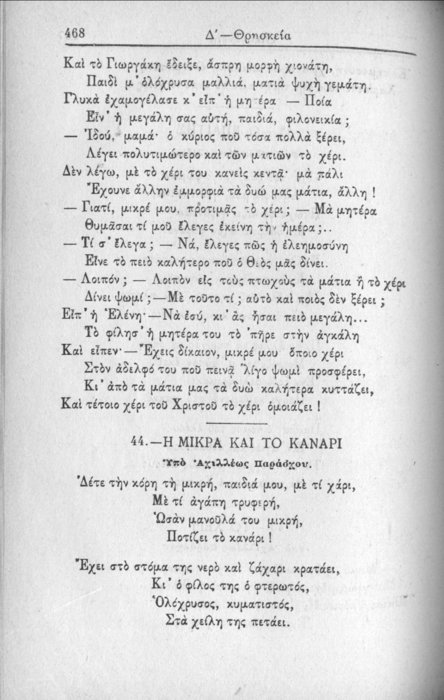 468
Δʹ—Θρησκεία
Καὶ τὸ Γιωργάκη ἔδειξε, ἄσπρη μορφὴ χιονάτη,
Παιδὶ μ' ὁλόχρυσα μαλλιά, ματιὰ ψυχὴ γεμάτη.
Γλυκὰ ἐχαμογέλασε κ' εἶπ' ἡ μητέρα — Ποία
Εἶν' ἡ μεγάλη σας αὐτή, παιδιά, φιλονεικία ;
— Ἰδού, μαμά· ὁ κύριος ποῦ τόσα πολλὰ ξέρει,
Λέγει πολυτιμώτερο καὶ τῶν ματιῶν τὸ χέρι.
Δὲν λέγω, μὲ τὸ χέρι του κανεὶς κεντᾷ· μὰ πάλι
Ἔχουνε ἄλλην ἐμμορφιὰ τὰ δυώ μας μάτια, ἄλλη !
— Γιατί, μικρέ μου, προτιμᾷς τὸ χέρι ; — Μὰ μητέρα
Θυμᾶσαι τί μοῦ ἔλεγες ἐκείνη τὴν ἡμέρα ;..
— Τί σ' ἔλεγα ; — Νά, ἔλεγες πῶς ἡ ἐλεημοσύνη
Εἶνε τὸ πειὸ καλήτερο ποῦ ὁ Θεὸς μᾶς δίνει.
— Λοιπόν ; — Λοιπὸν εἰς τοὺς πτωχοὺς τὰ μάτια ἢ τὸ χέρι
Δίνει ψωμί ; — Μὲ τοῦτο τί ; αὐτὸ καὶ ποιὸς δὲν ξέρει ;
Εἶπ' ἡ Ἑλένη·—Νὰ ἐσύ, κι' ἂς ἦσαι πειὸ μεγάλη...
Τὸ φίλησ' ἡ μητέρα του τὸ 'πῆρε στὴν ἀγκάλη
Καὶ εἶπεν·—Ἔχεις δίκαιον, μικρέ μου ὅποιο χέρι
Στὸν ἀδελφό του ποῦ πεινᾷ 'λίγο ψωμὶ προσφέρει,
Κι' ἀπὸ τὰ μάτια μας τὰ δυὼ καλήτερα κυττάζει,
Καὶ τέτοιο χέρι τοῦ Χριστοῦ τὸ χέρι ὁμοιάζει !
44.—Η ΜΙΚΡΑ ΚΑΙ ΤΟ ΚΑΝΑΡΙ
Ὑπὸ Ἀχιλλέως Παράσχου.
Δέτε τὴν κόρη τὴ μικρή, παιδιά μου, μὲ τί χάρι,
Μὲ τί ἀγάπη τρυφιρή,
Ὡσὰν μανοῦλά του μικρή,
Ποτίζει τὸ κανάρι !
Ἔχει στὸ στόμα της νερὸ καὶ ζάχαρι κρατάει,
Κι' ὁ φίλος της ὁ φτερωτός,
Ὁλόχρυσος, κυματιστός,
Στὰ χείλη της πετάει.